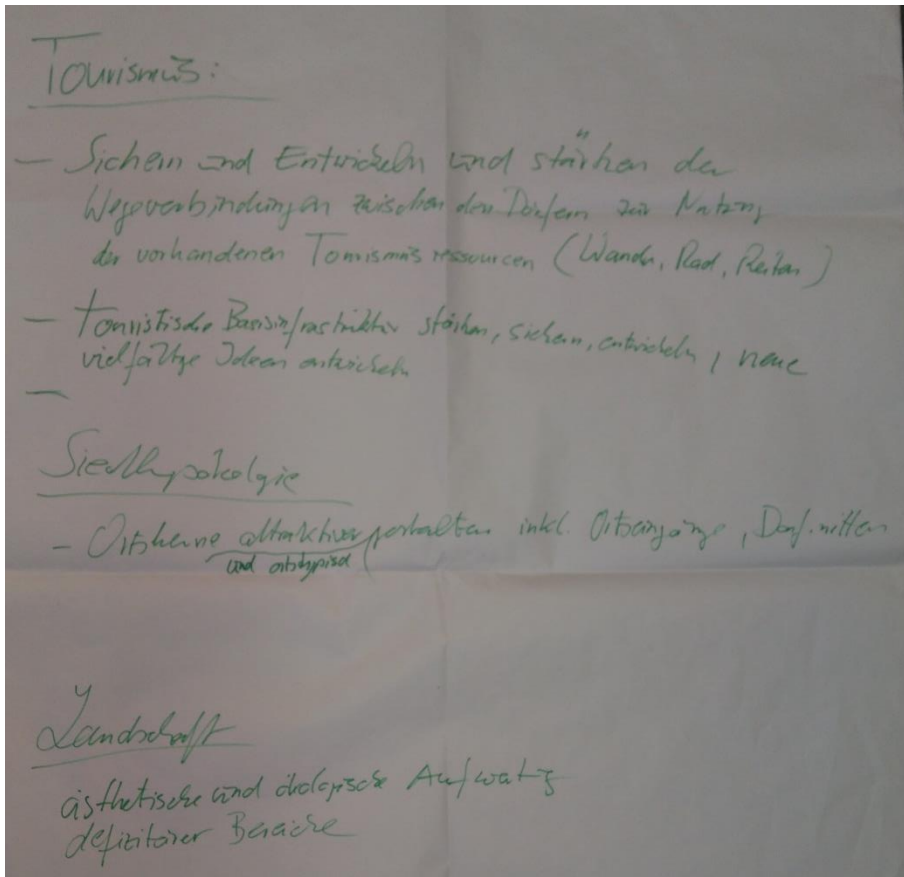 Tourismus:
- Sichern und Entwickeln und stärken der
Wegeverbindungen zwischen den Dörfern zur Nutzung
der vorhandenen Tourismusressourcen (Wandn, Rad, Reiten)
- touristische Basisinfrastruktur stärken, sichern, entwickeln, neue
vielfältige Ideen entwickeln
-
Siedlungsökologie
- Ortskerne attraktiver gestalten inkl. Ortseingänge, Dorfmitten
und ortstypisch
Landschaft
ästhetische und ökologische Aufwertung
defizitärer Bereiche